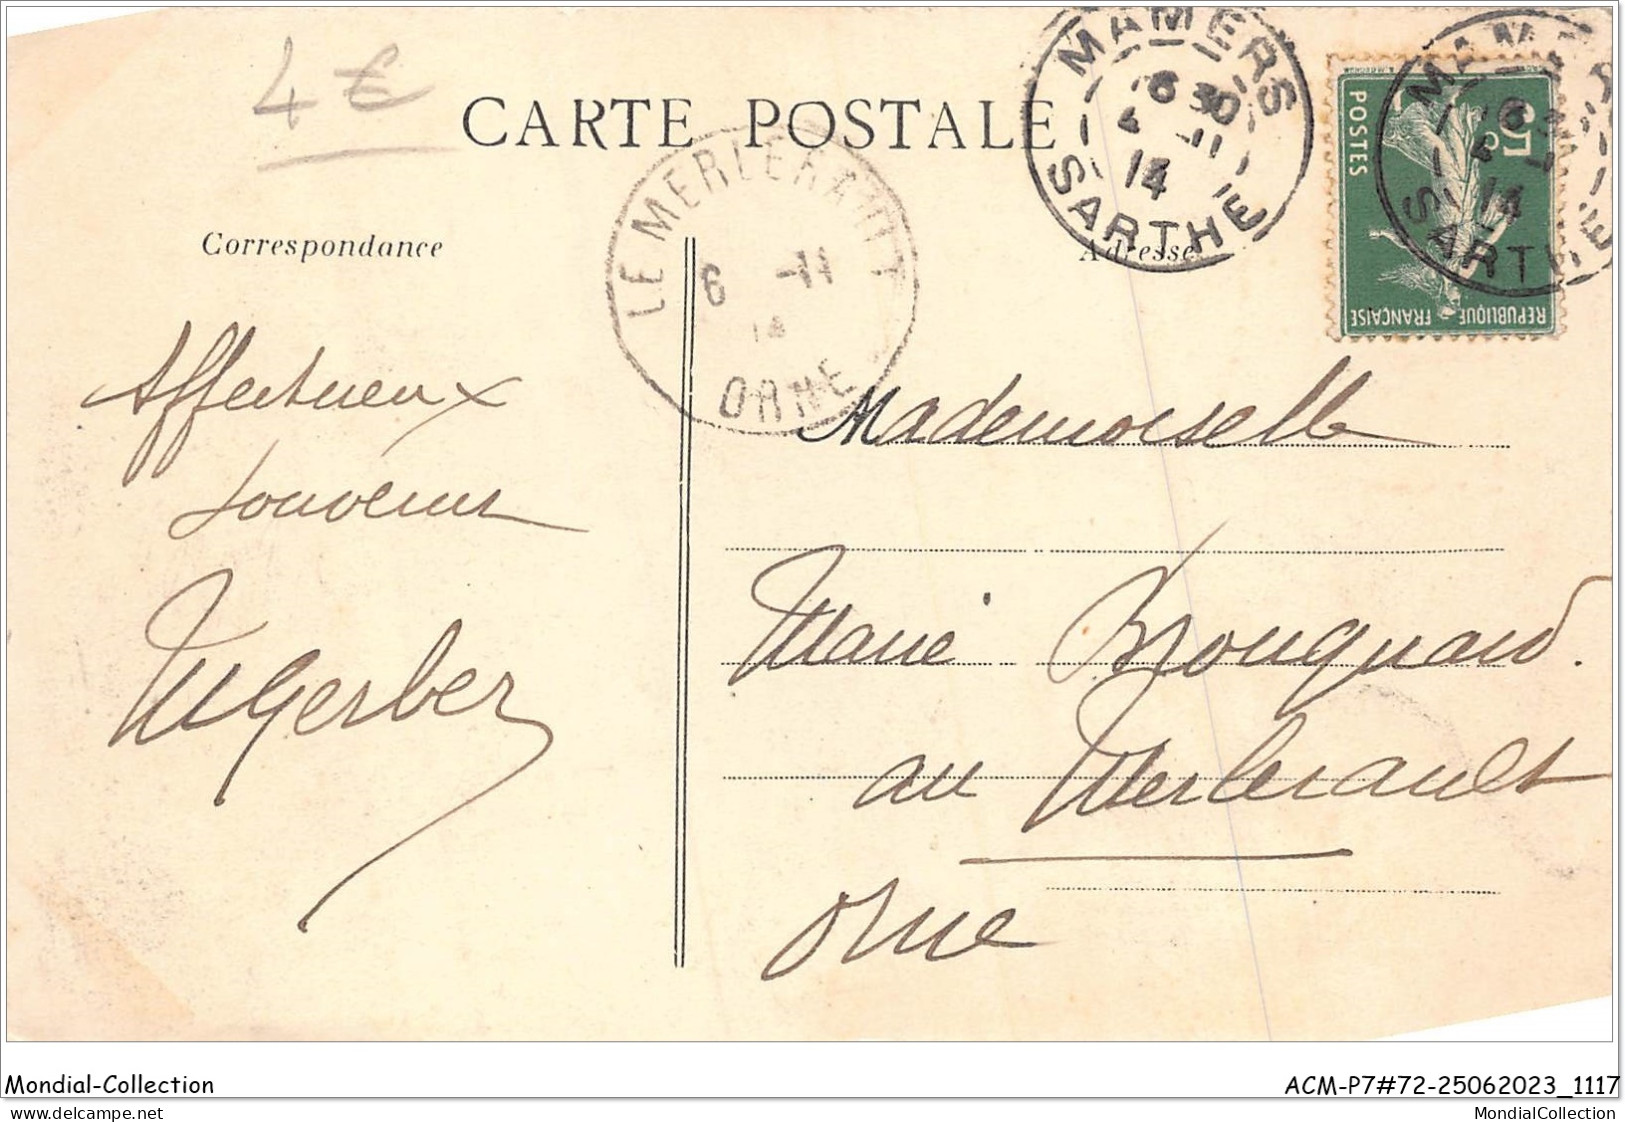 4€
CARTE POSTALE
MAMERS
6 30
-11
14
SARTHE
5c
POSTES
REPUBLIQUE FRANÇAISE
MAMERS
14
SARTHE
LE MERLERAULT
6 -11
14
ORNE
Correspondance
Adresse
Affectueux
souvenir
MGerber
Mademoiselle
Marie Brouquard.
au Merlerault
Orne
Mondial-Collection
ACM-P7#72-25062023_1117
delcampe.net
MondialCollection